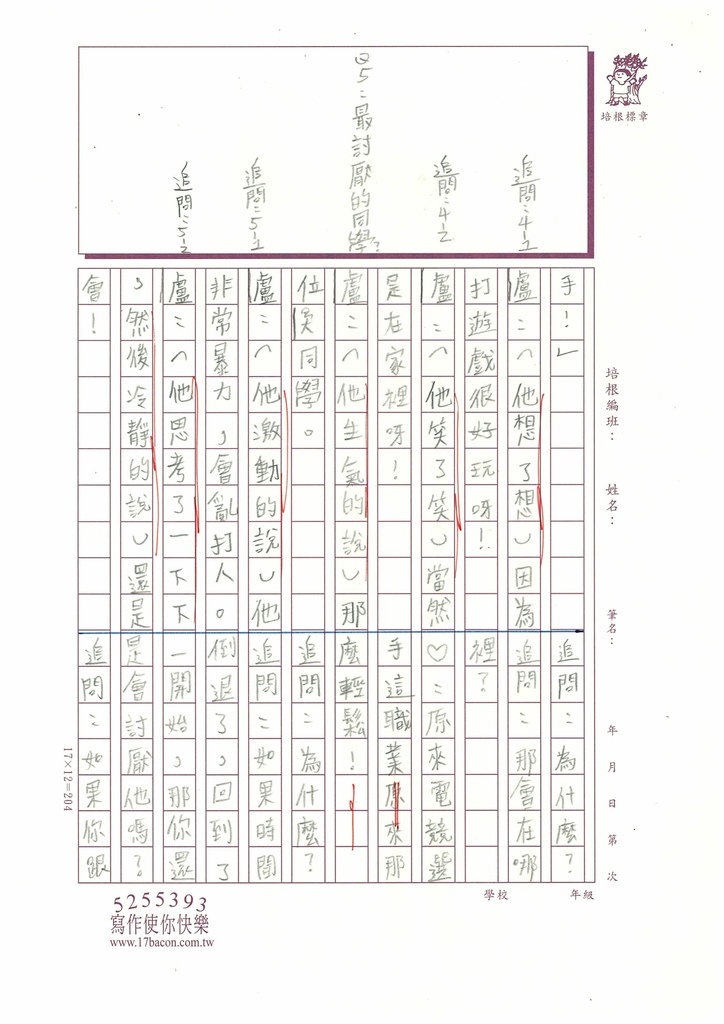 培根標章
追問：4-1
追問：4-2
Q5：最討厭的同學？
追問：5-1
追問：5-2
手！」
盧：（他想了想）因為
打遊戲很好玩呀！！
盧：（他笑了笑）當然
是在家裡呀！
盧：（他生氣的說）那
位吳同學。
盧：（他激動的說）他
非常暴力，會亂打人。
盧：（他思考了一下下
，然後冷靜的說）還是
會！
追問：為什麼？
追問：那會在哪
裡？
♡：原來電競選
手這職業原來那
麼輕鬆！
追問：為什麼？
追問：如果時間
倒退了，回到了
一開始，那你還
是會討厭他嗎？
追問：如果你跟
培根編班：
姓名：
筆名：
年 月 日 第 次
學校 年級
17×12=204
5255393
寫作使你快樂
www.17bacon.com.tw